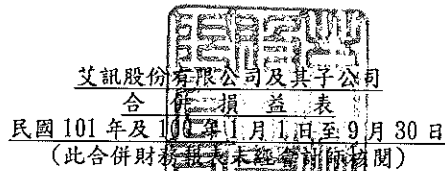 艾訊股份有限公司及其子公司
合併損益表
民國 101 年及 100 年 1 月 1 日至 9 月 30 日
(此合併財務報表未經會計師核閱)